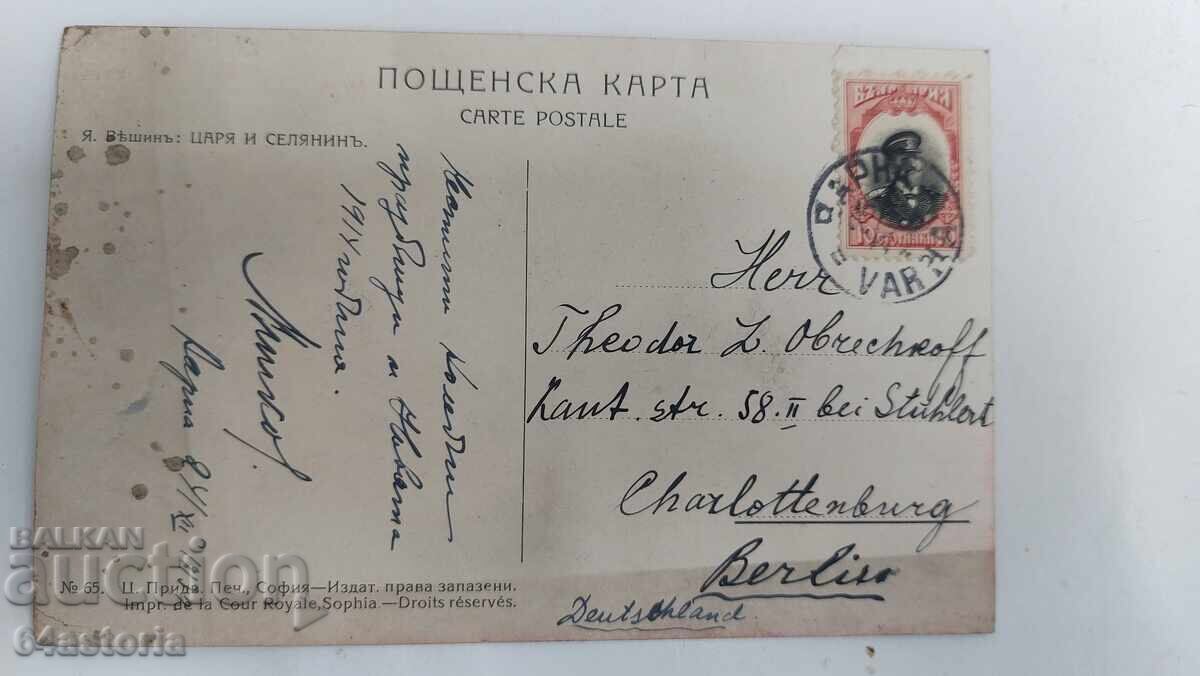 ПОЩЕНСКА КАРТА
CARTE POSTALE
Я. Вѣшинъ: ЦАРЯ И СЕЛЯНИНЪ.
Честити коледни
празднци и Новата
1914 година.
Варна
БЪЛГАРИЯ
ВАРНА
VAR
Herr
Theodor L. Obrechkoff
Kant. str. 58. II bei Stühlert
Charlottenburg
Berlin
Deutschland
№ 65. Ц. Придв. Печ., София—Издат. права запазени.
Impr. de la Cour Royale, Sophia.—Droits réservés.
BALKAN
auction
64astoria